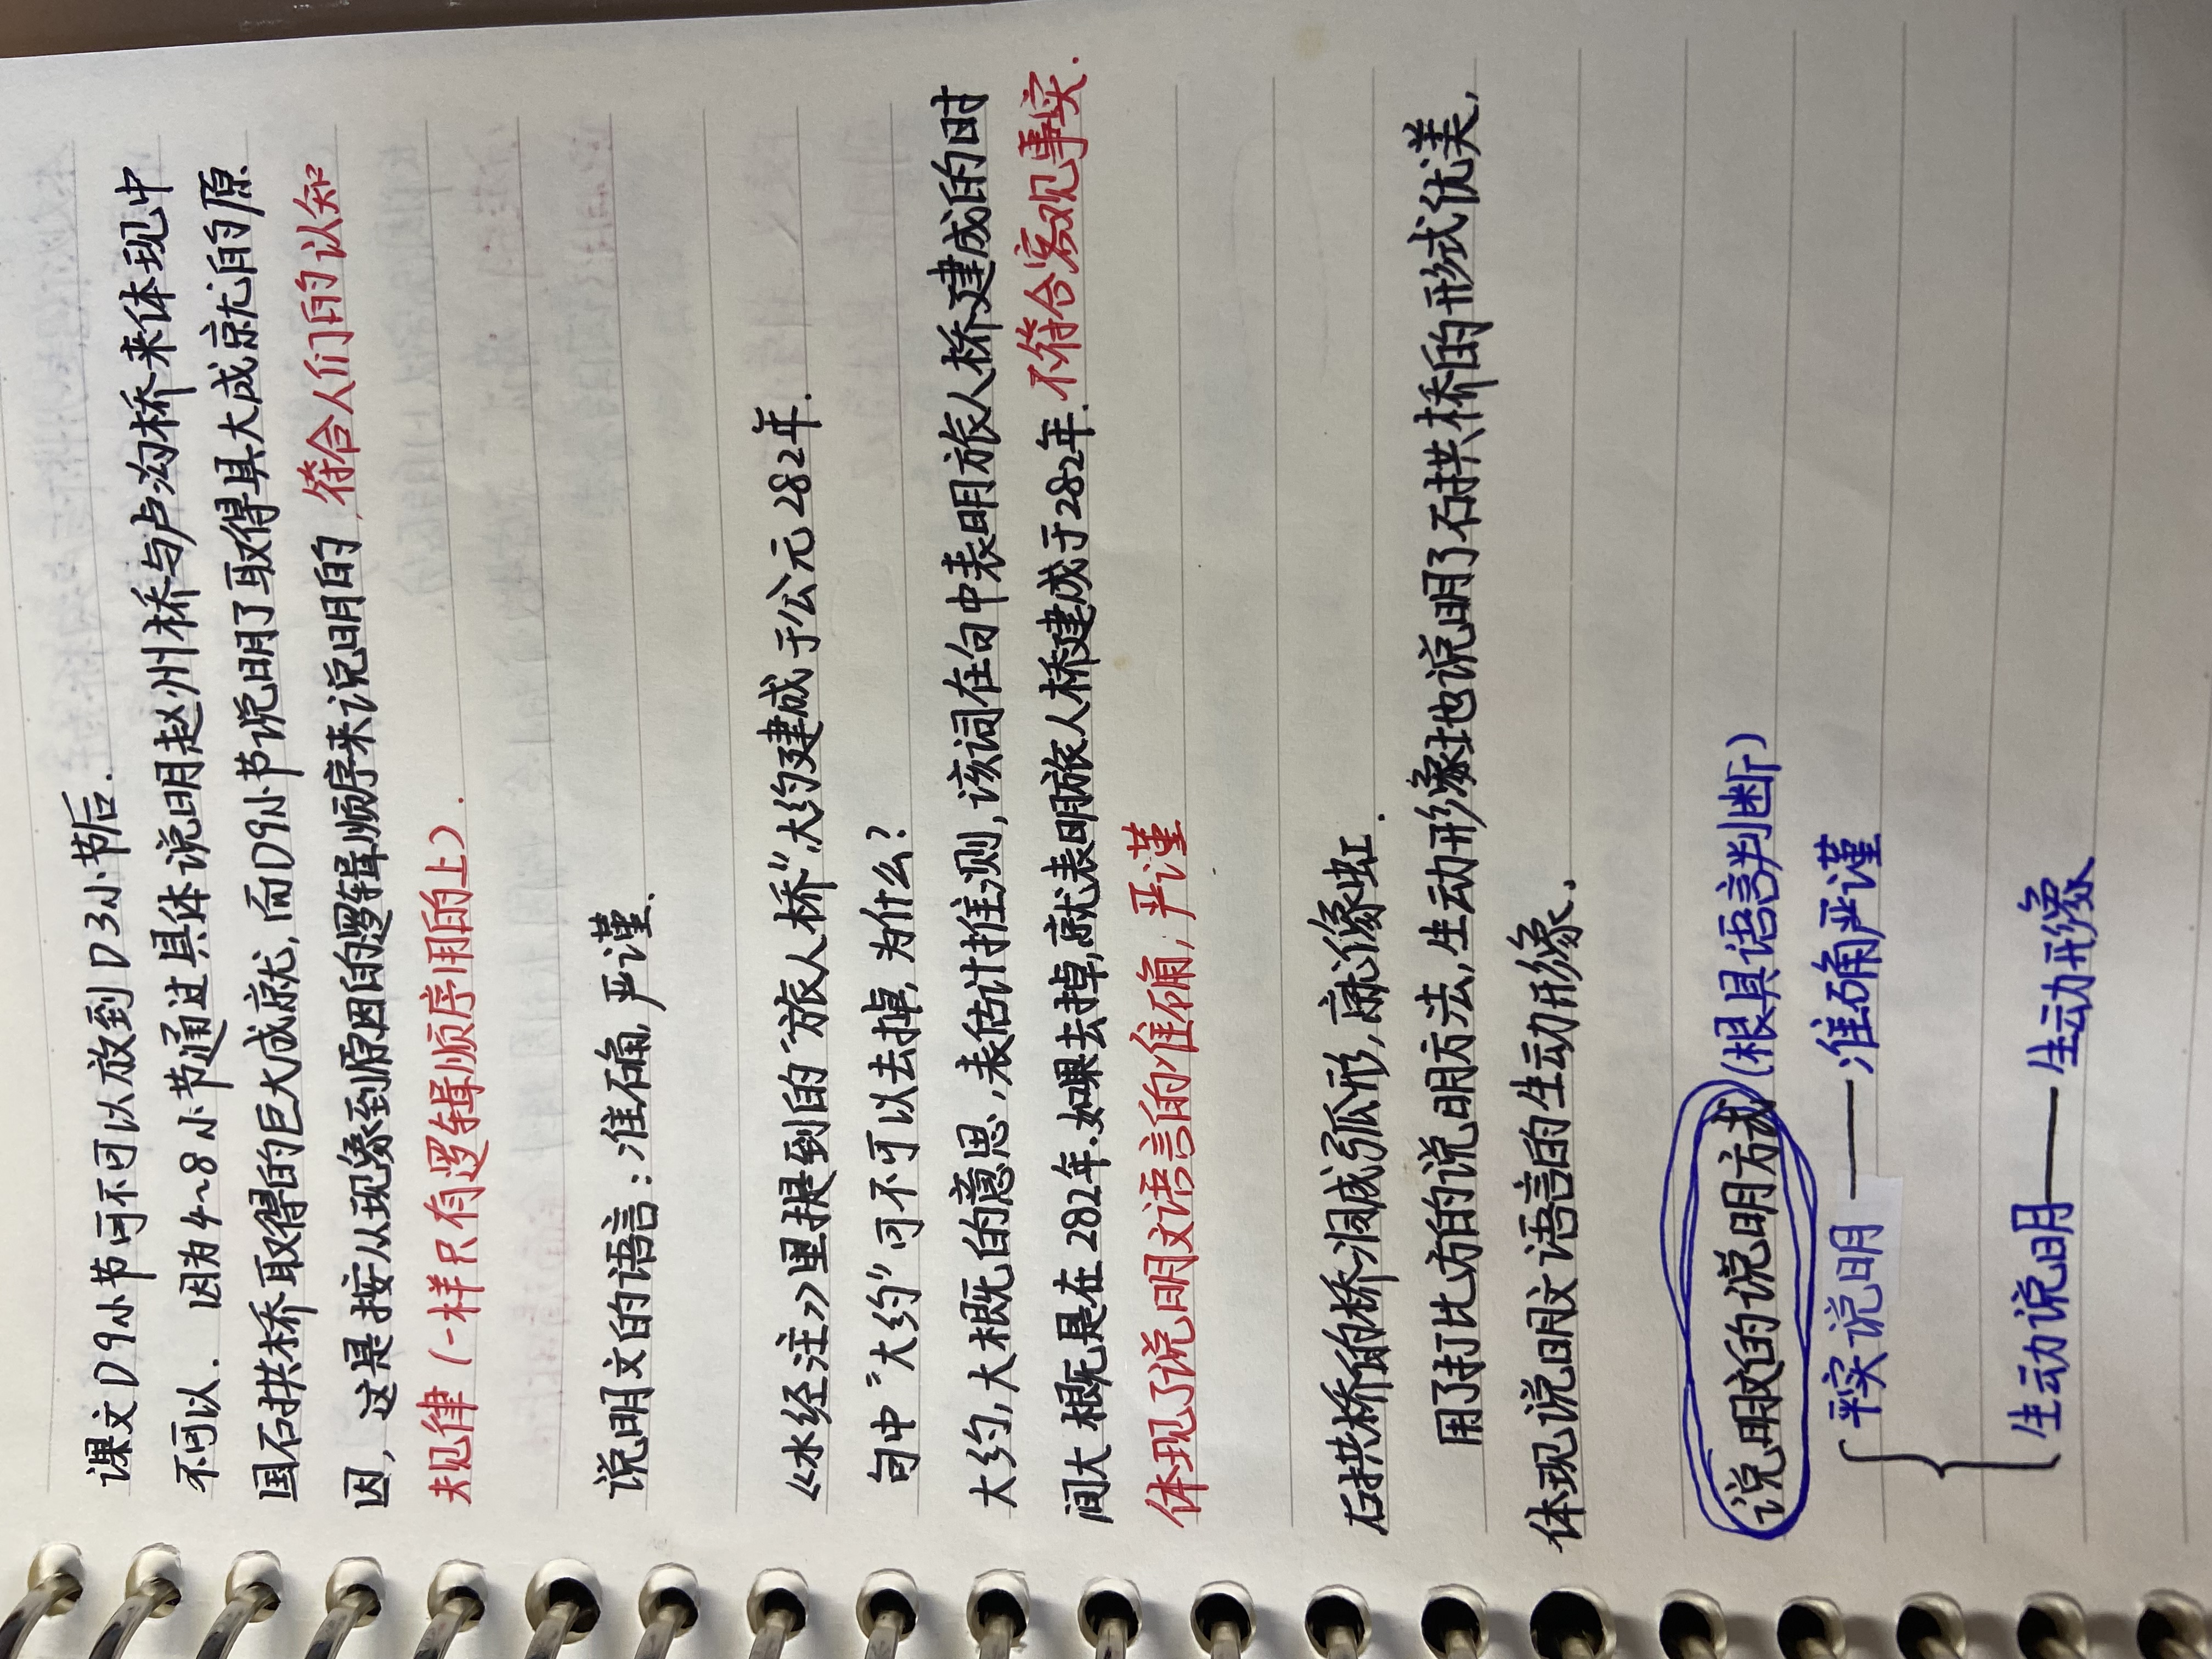 课文D9小节可不可以放到D3小节后.
不可以. 因为4~8小节通过具体说明赵州桥与卢沟桥来体现中
国石拱桥取得的巨大成就,而D9小节说明了取得其大成就的原
因,这是按从现象到原因的逻辑顺序来说明的,符合人们的认知
规律(一样只有逻辑顺序用的上).
说明文的语言:准确,严谨.
《水经注》里提到的“旅人桥”大约建成于公元282年.
句中“大约”可不可以去掉,为什么?
大约,大概的意思,表估计推测,该词在句中表明旅人桥建成的时
间大概是在282年.如果去掉,就表明旅人桥建成于282年.不符合客观事实.
体现了说明文语言的准确,严谨
石拱桥的桥洞成弧形,就像虹.
用了打比方的说明方法,生动形象地说明了石拱桥的形式优美,
体现说明文语言的生动形象.
说明文的说明方式(根具语言判断)
平实说明——准确严谨
生动说明——生动形象